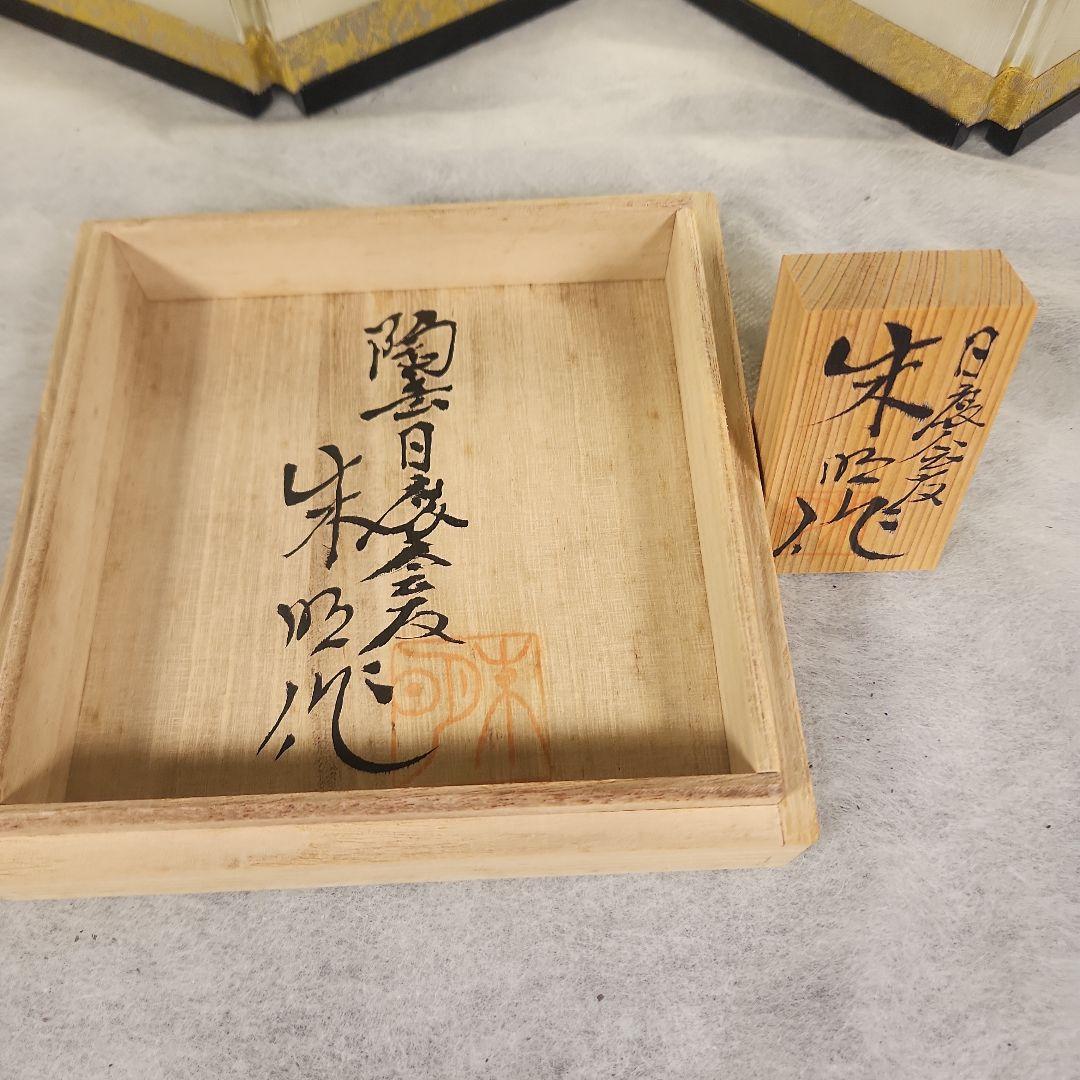 陶芸日展会友
朱明作
朱明
日展会友
朱明作